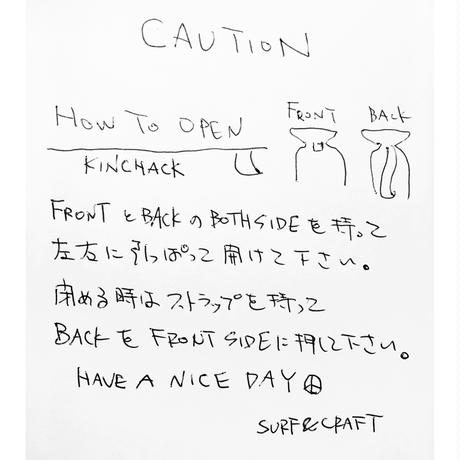 CAUTION
HOW TO OPEN
FRONT BACK
KINCHACK
FRONT と BACK の BOTH SIDE を 持って
左右に引っぱって開けて下さい。
閉める時はストラップを持って
BACK を FRONT SIDE に押して下さい。
HAVE A NICE DAY
SURF&CRAFT